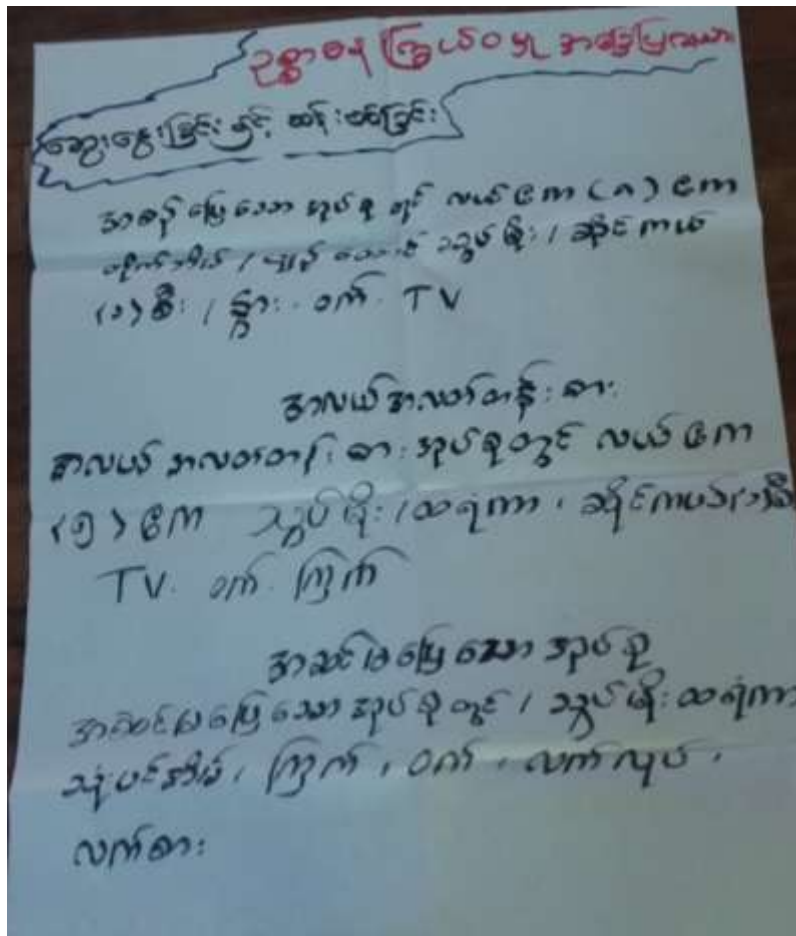 ဥစ္စာဓန ကြွယ်ဝမှု အခြေပြကားချပ်
ဆွေးနွေးခြင်းနှင့် ဆန်းစစ်ခြင်း
အဆင်ပြေသောအုပ်စုတွင် လယ်ဧက (၈) ဧက
တိုက်အိမ် / ပျဉ်ထောင် သွပ်မိုး / ဆိုင်ကယ်
(၁)စီး / နွား . ဝက် . TV
အလယ်အလတ်တန်းစား
အလယ်အလတ်တန်းစားအုပ်စုတွင် လယ်ဧက
(၅) ဧက သွပ်မိုး / ထရံကာ ၊ ဆိုင်ကယ်(၁)စီး
TV. ဝက် . ကြက်
အဆင်မပြေသောအုပ်စု
အဆင်မပြေသောအုပ်စုတွင် / သွပ်မိုးထရံကာ
သုံးပင်အိမ် ၊ ကြက် ၊ ဝက် ၊ လက်လုပ် ၊
လက်စား